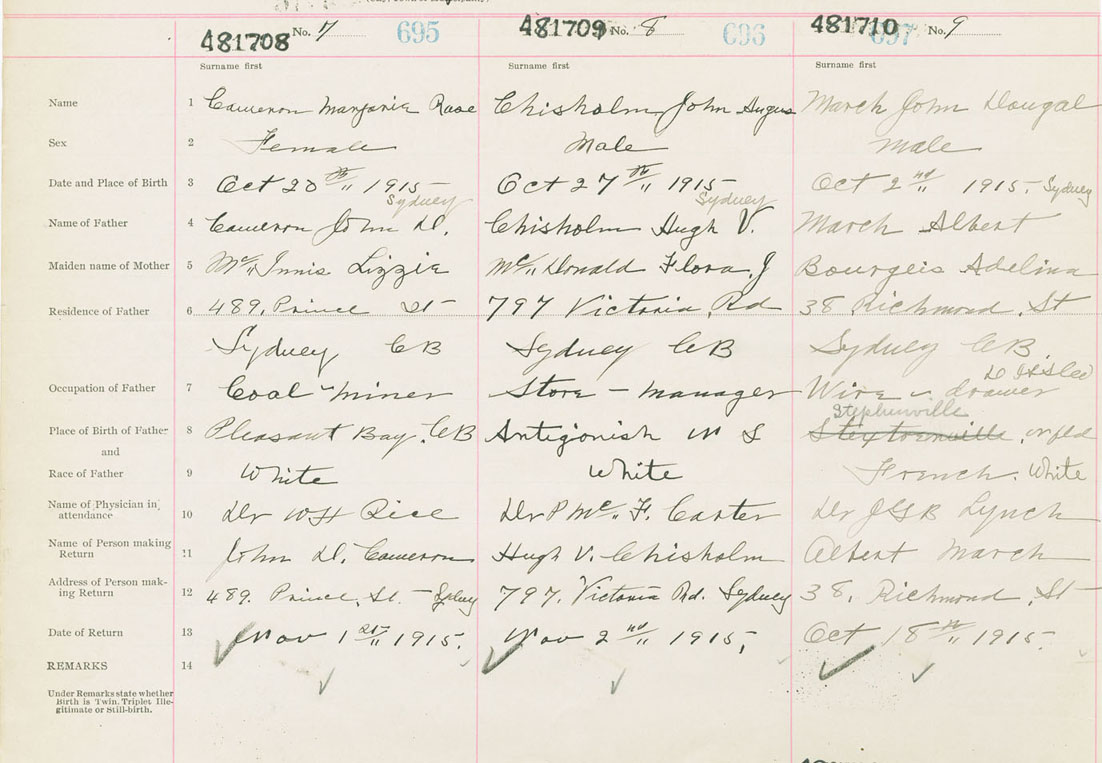 481708 No. 7 695 481709 No. 8 696 481710 No. 9 697
Surname first Surname first Surname first
Name 1 Cameron Marjorie Chisholm John Angus March John Dougal
Sex 2 Female Male Male
Date and Place of Birth 3 Oct 20th 1915 Oct 27th 1915 Oct 2nd 1915, Sydney
Sydney Sydney
Name of Father 4 Cameron John D. Chisholm Hugh V. March Albert
Maiden name of Mother 5 Mc Innis Lizzie Mc Donald Flora J Bourgeis Adelina
Residence of Father 6 489, Prince St 797 Victoria Rd 38 Richmond St
Sydney CB Sydney CB Sydney CB
D I & S Co
Occupation of Father 7 Coal-miner Store-manager Wire-drawer
Stephenville
Place of Birth of Father 8 Pleasant Bay, CB Antigonish N S nfld
and
Race of Father 9 White White French. White
Name of Physician in attendance 10 Dr WH Rice Dr P Mc. F. Carter Dr JGB Lynch
Name of Person making Return 11 John D. Cameron Hugh V. Chisholm Albert March
Address of Person making Return 12 489. Prince, St. - Sydney 797. Victoria Rd. Sydney 38, Richmond, St
Date of Return 13 Nov 1st 1915. Nov 2nd 1915, Oct 18th 1915.
REMARKS 14
Under Remarks state whether
Birth is Twin, Triplet, Ille-
gitimate or Still-birth.